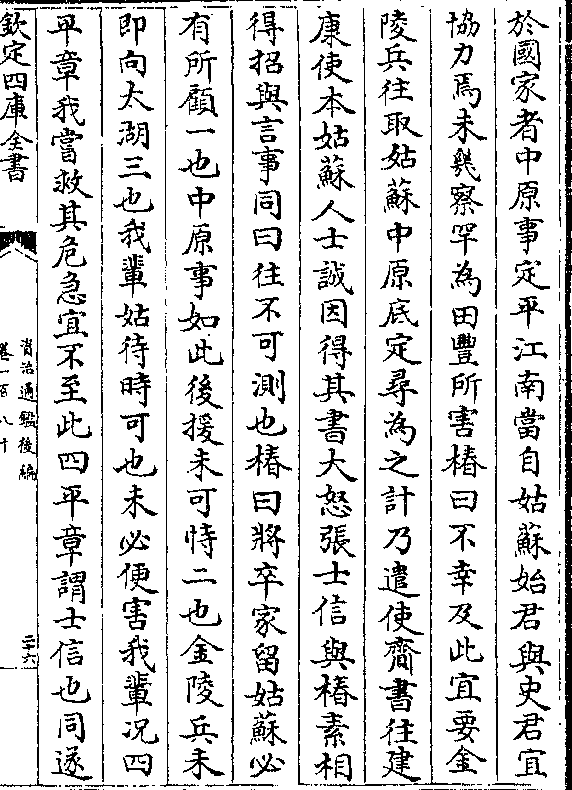 於國家者中原事定平江南當自姑蘇始君與史君宜
協力焉未幾察罕為田豐所害椿曰不幸及此宜要金
陵兵往取姑蘇中原底定尋為之計乃遣使齎書往建
康使本姑蘇人士誠因得其書大怒張士信與椿素相
得招與言事同曰往不可測也椿曰將卒家留姑蘇必
有所顧一也中原事如此後援未可恃二也金陵兵未
即向太湖三也我輩姑待時可也未必便害我輩況四
平章我當救其危急宜不至此四平章謂士信也同遂
欽定四庫全書
資治通鑑後編
卷一百八十
二十六